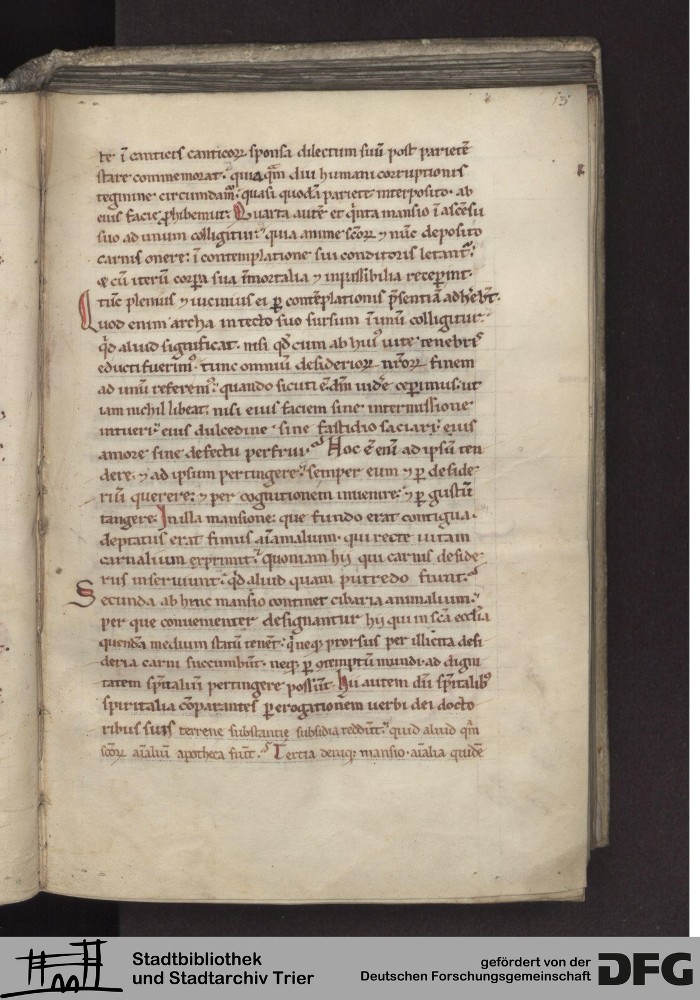 135
te ī canticis canticoꝝ sponsa dilectum suū post parietē
stare commemorat. quia qm̄ diu humani corruptionis
tegmine circumdam᷒. quasi quodā pariete interposito. ab
eius facie ꝓhibemur. Quarta autē et q̇nta mansio ī ascēsu
suo ad unum colligitur. quia anime scōꝝ ⁊ nunc deposito
carnis onere. ī contemplatione sui conditoris letant᷒.
⁊ cū iterū corpora sua īmortalia ⁊ inpassibilia receperint.
tūc plenius ⁊ iucunius ei ꝑ contēplationis p̄sentiā adherebt̄.
Quod enim archa in tecto suo sursum ī unū colligitur.
qd̄ aliud significat. nisi qd̄ cum ab hui᷒ uite tenebris
educti fuerim᷒. tunc omniū desiderioꝝ nr̄oꝝ finem
ad unū referem᷒. quando sicuti ē dm̄ uidē ceperimus. ut
iam nichil libeat. nisi eius faciem sine intermissione
intueri. eius dulcedine sine fastidio saciari. eius
amore sine defectu perfrui. Hoc ē eni ad ipsū ten
dere. ⁊ ad ipsum pertingere. semper eum ⁊ ꝑ deside
riū querere. ⁊ per cognitionem inuenire. ⁊ ꝑ gustū
tangere. In illa mansione. que fundo erat contigua.
deputatus erat fimus aīamalium. qui recte uitam
carnalium exprimit. quoniam hii qui carnis deside
riis inseruiunt. qd̄ aliud quam putredo fiunt.
Secunda ab hinc mansio continet cibaria animalium.
per que conuenienter designantur hii qui in scā ecclīa
quendā medium statū tenēt. q̇ neq; prorsus per illicita desi
deria carni succumbūt. neq; ꝑ ꝯtemptū mundi ad digni
tatem spītaliū pertingere possūt. Hii autem dū spīritalib᷒
spiritalia cōparantes ꝑ erogationem uerbi dei docto
ribus suis terrene substantie subsidia reddūt. quid aliud qm̄
scōꝝ aīaliū apotheca fiūt. Tercia deniq; mansio. aīalia quidē
Stadtbibliothek
und Stadtarchiv Trier
gefördert von der
Deutschen Forschungsgemeinschaft
DFG